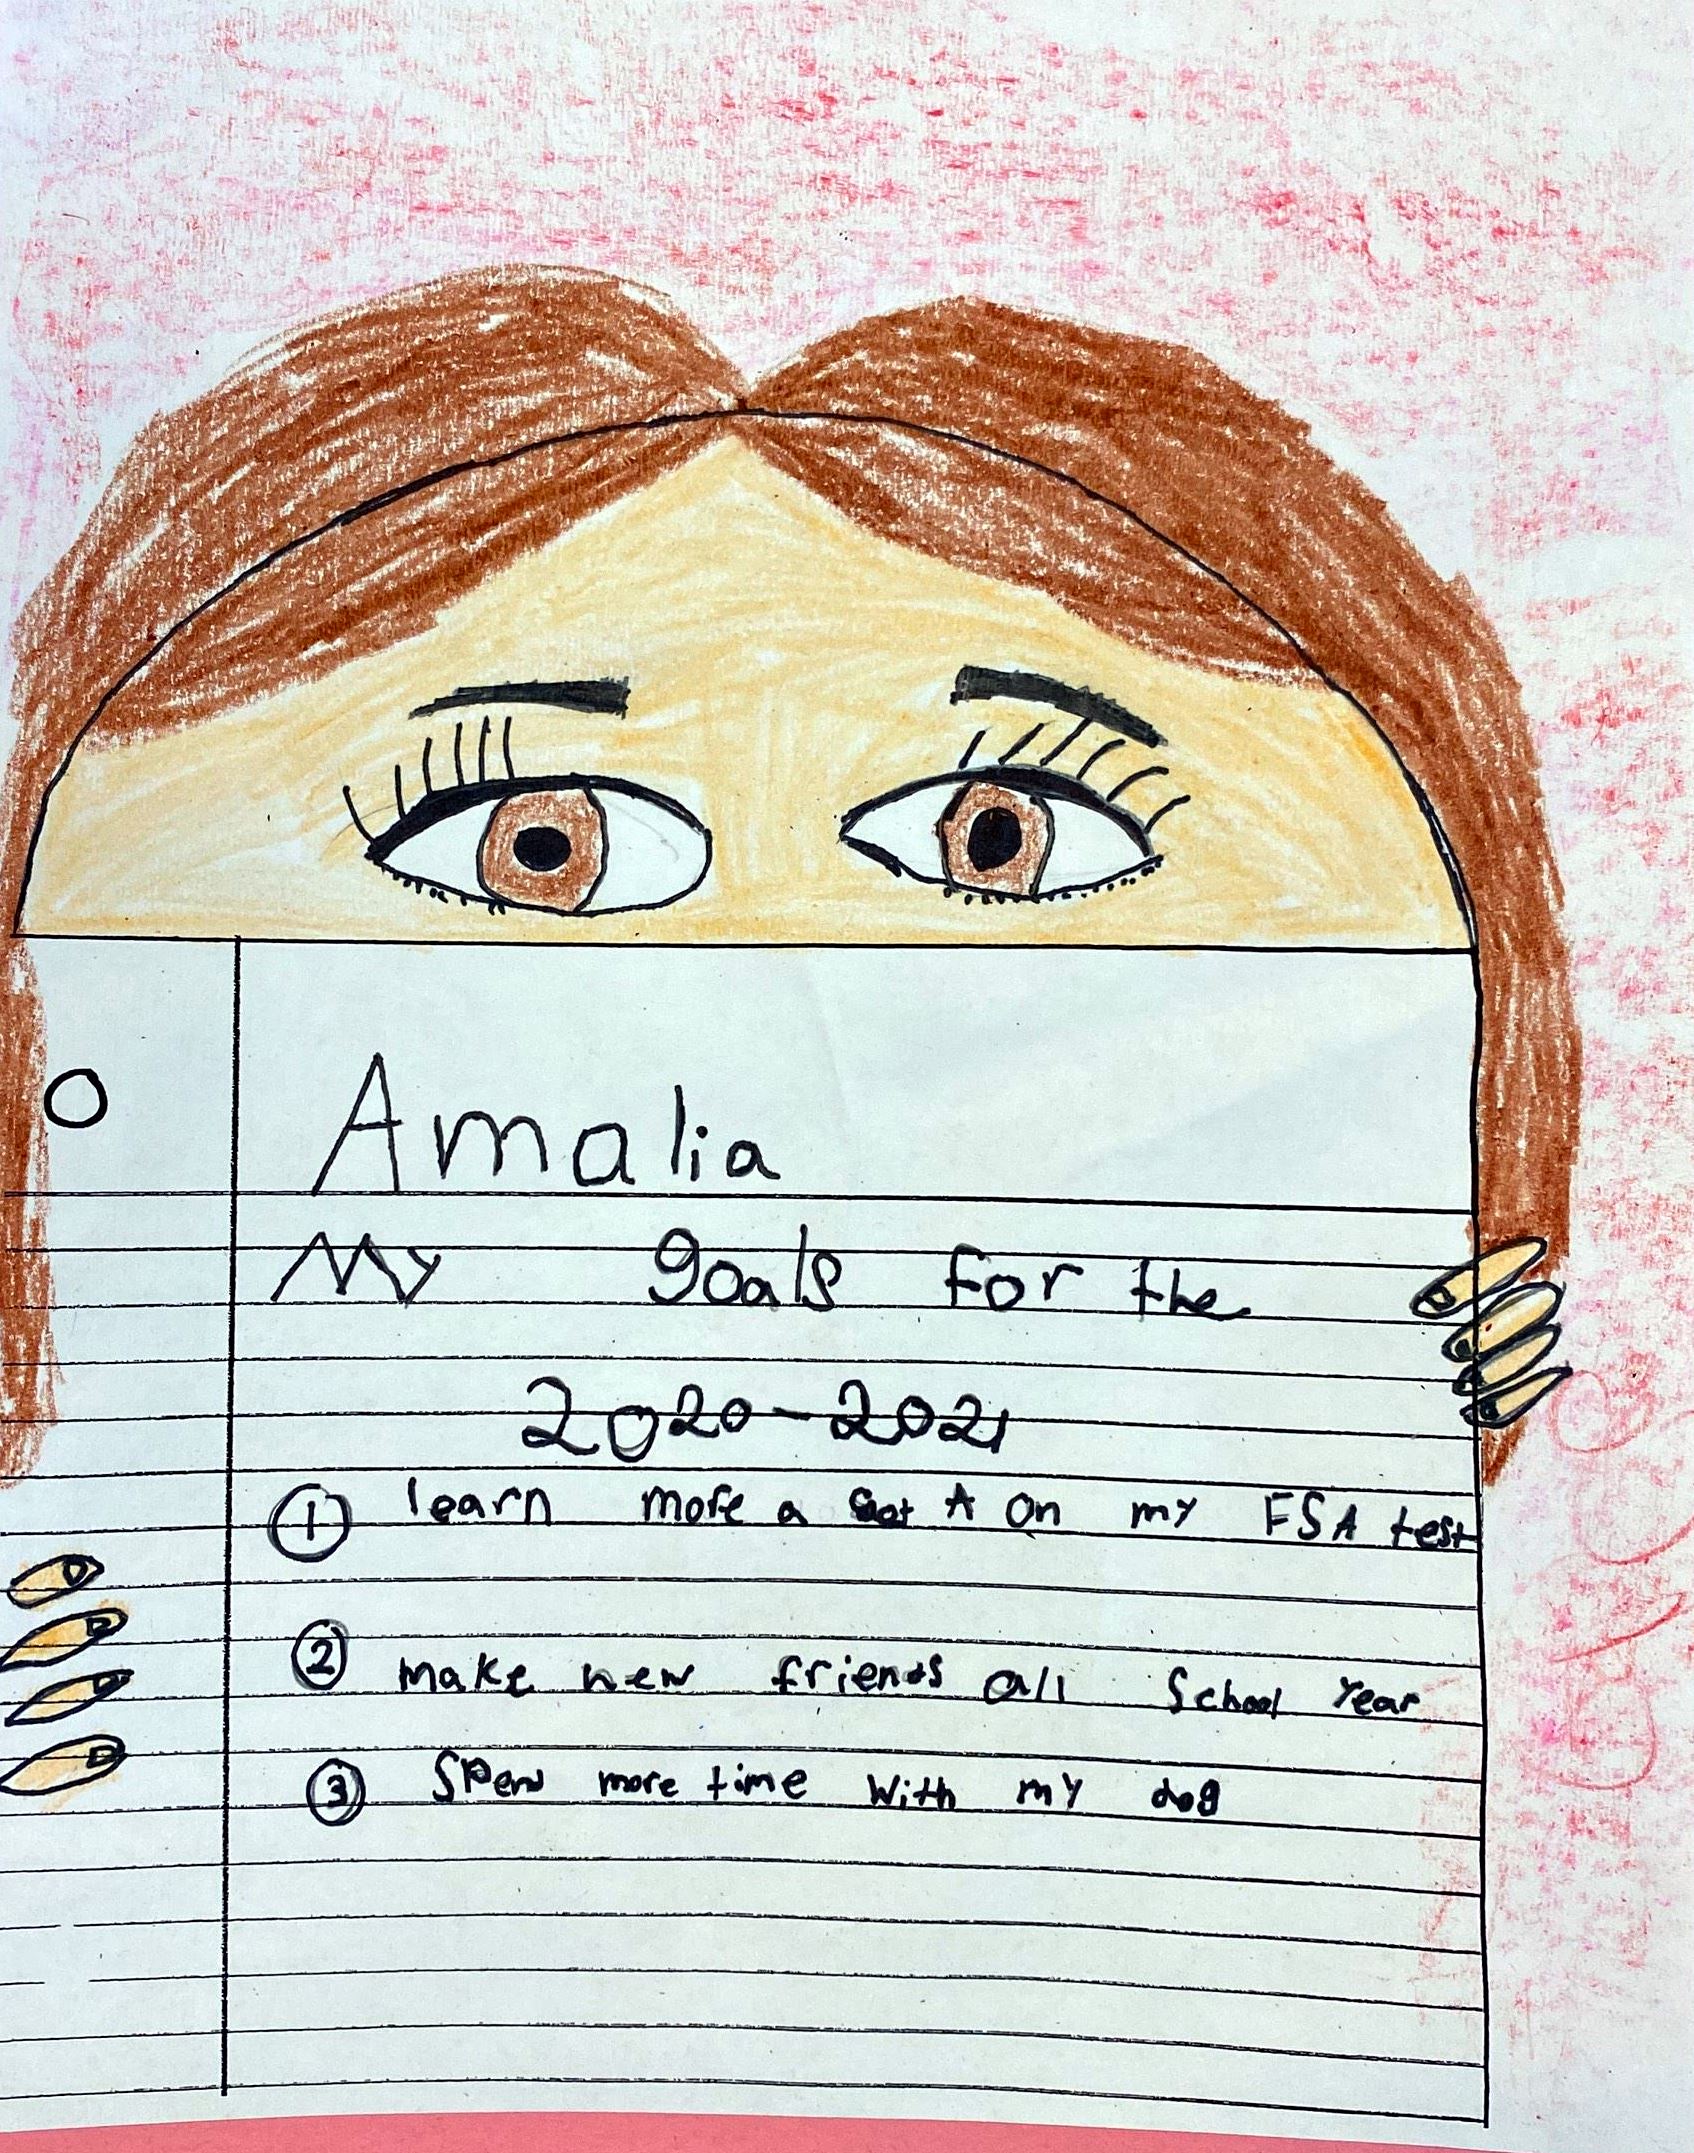 Amalia
My goals for the
2020-2021
① learn more a Got A on my FSA test
② make new friends all School Year
③ Spend more time with my dog